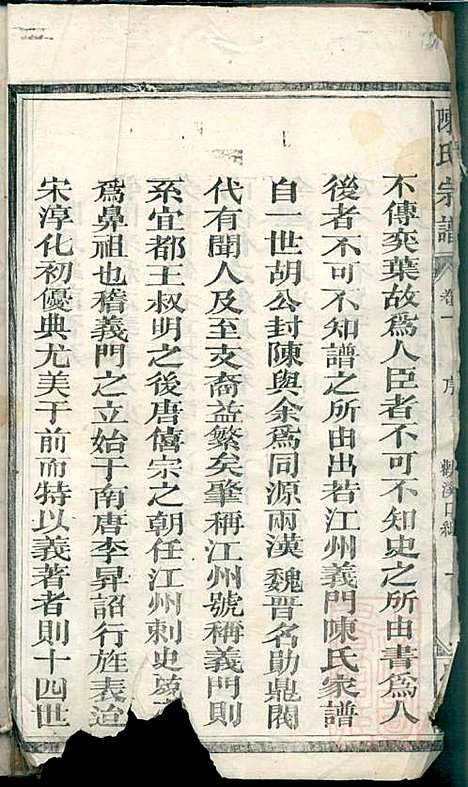 陳氏宗譜 卷一 序
不傳奕葉故爲人臣者不可不知史之所由書爲人
後者不可不知譜之所由出若江州義門陳氏家譜
自一世胡公封陳與余爲同源兩漢魏晋名勛鼎閥
代有聞人及至支裔益繁矣肇稱江州號稱義門則
系宜都王叔明之後唐僖宗之朝任江州刺史
爲鼻祖也稽義門之立始于南唐李昇詔行旌表迨
宋淳化初優典尤美于前而特以義著者則十四世